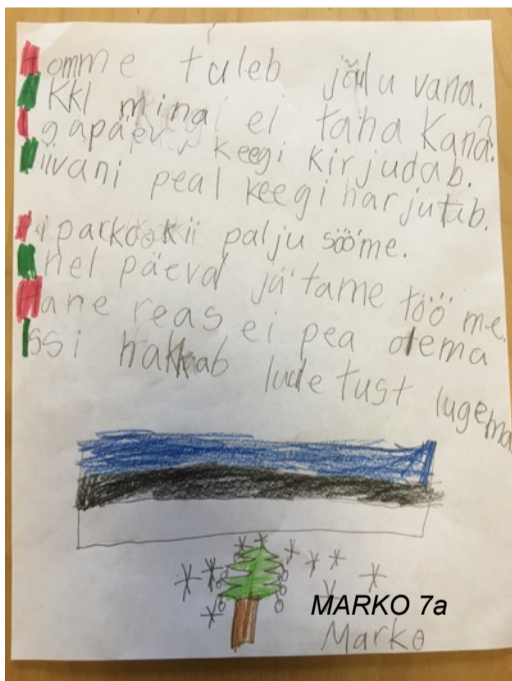 Homme tuleb jõulu vana.
Ikki minai ei taha kana.
Igapäev keegi kirjudab.
Diivani peal keegi harjutab.
Piparkookii palju sööme.
Enel päeval jätame töö me.
Hane reas ei pea olema
Issi hakkab ludetust lugema
MARKO 7a
Marko